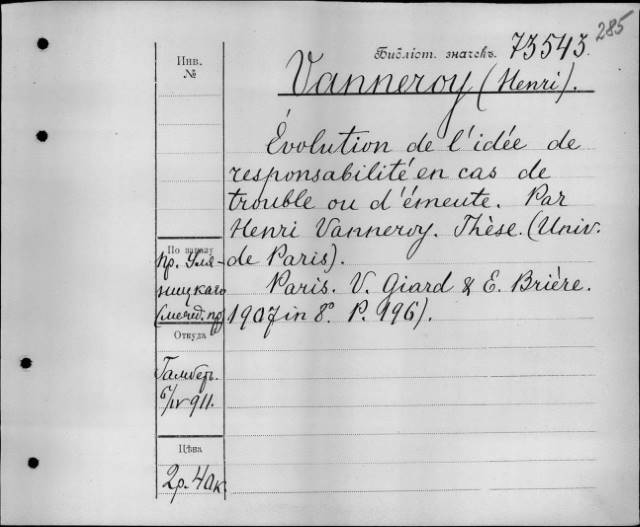 285
Библіот. значекъ. 73543.
Инв.
№
Vanneroy (Henri).
Évolution de l'idée de
responsabilité en cas de
trouble ou d'émeute. Par
Henri Vanneroy. Thèse. (Univ.
de Paris).
Paris. V. Giard & E. Brière.
1907 in 8° P. 196).
По наряду
пр. Уля-
ницкаго
Откуда
Гамбер.
6/IV 911.
Цѣна
2р. 40к